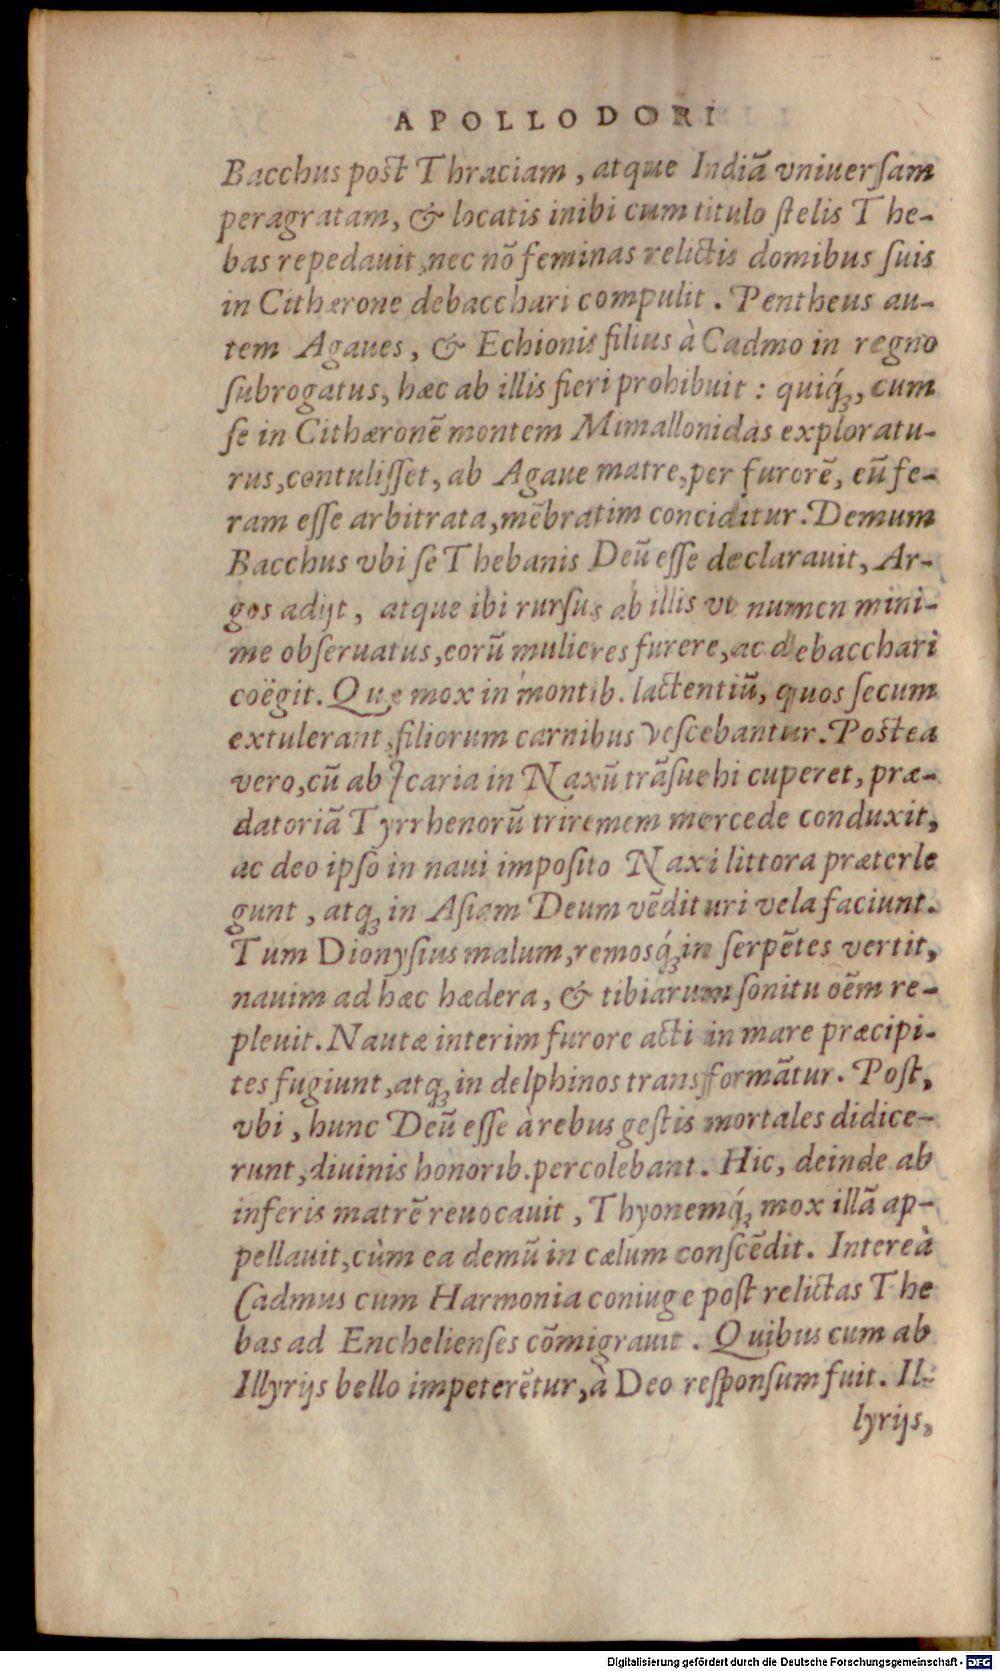 APOLLODORI
Bacchus post Thraciam, atque Indiã vniuersam
peragratam, & locatis inibi cum titulo stelis The-
bas repedauit, nec nõ feminas relictis domibus suis
in Cithærone debacchari compulit. Pentheus au-
tem Agaues, & Echionis filius à Cadmo in regno
subrogatus, hæc ab illis fieri prohibuit: quiq́;, cum
se in Cithæronẽ montem Mimallonidas exploratu-
rus, contulisset, ab Agaue matre, per furorẽ, eũ fe-
ram esse arbitrata, mẽbratim conciditur. Demum
Bacchus vbi se Thebanis Deũ esse declarauit, Ar-
gos adijt, atque ibi rursus ab illis vt numen mini-
me obseruatus, eorũ mulieres furere, ac debacchari
coëgit. Quæ mox in montib. lactentiũ, quos secum
extulerant, filiorum carnibus vescebantur. Postea
vero, cũ ab Icaria in Naxũ trãsuehi cuperet, præ-
datoriã Tyrrhenorũ triremem mercede conduxit,
ac deo ipso in naui imposito Naxi littora præterle
gunt, atq; in Asiam Deum vẽdituri vela faciunt.
Tum Dionysius malum, remosq́; in serpẽtes vertit,
nauim ad hæc hædera, & tibiarum sonitu oẽm re-
pleuit. Nautæ interim furore acti in mare præcipi-
tes fugiunt, atq; in delphinos transformãtur. Post,
vbi, hunc Deũ esse à rebus gestis mortales didice-
runt, diuinis honorib. percolebant. Hic, deinde ab
inferis matrẽ reuocauit, Thyonemq́; mox illã ap-
pellauit, cùm ea demũ in cælum conscẽdit. Intereà
Cadmus cum Harmonia coniuge post relictas The
bas ad Enchelienses cõmigrauit. Quibus cum ab
Illyrijs bello impeterẽtur, à Deo responsum fuit. Il-
lyrijs,
Digitalisierung gefördert durch die Deutsche Forschungsgemeinschaft - DFG